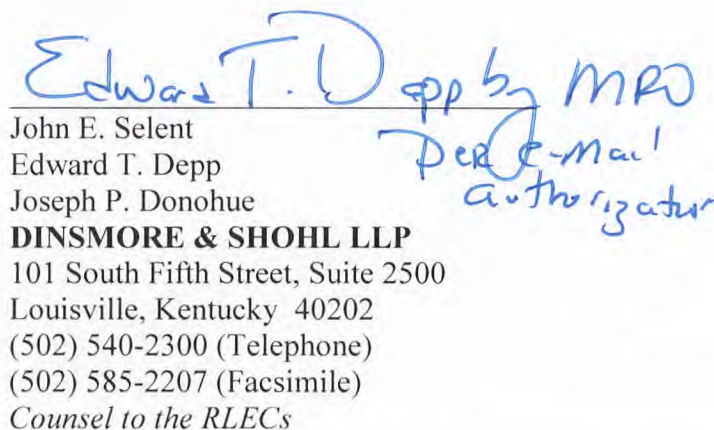 Edward T. Depp by MRO
per e-mail
authorization
John E. Selent
Edward T. Depp
Joseph P. Donohue
DINSMORE & SHOHL LLP
101 South Fifth Street, Suite 2500
Louisville, Kentucky 40202
(502) 540-2300 (Telephone)
(502) 585-2207 (Facsimile)
Counsel to the RLECs